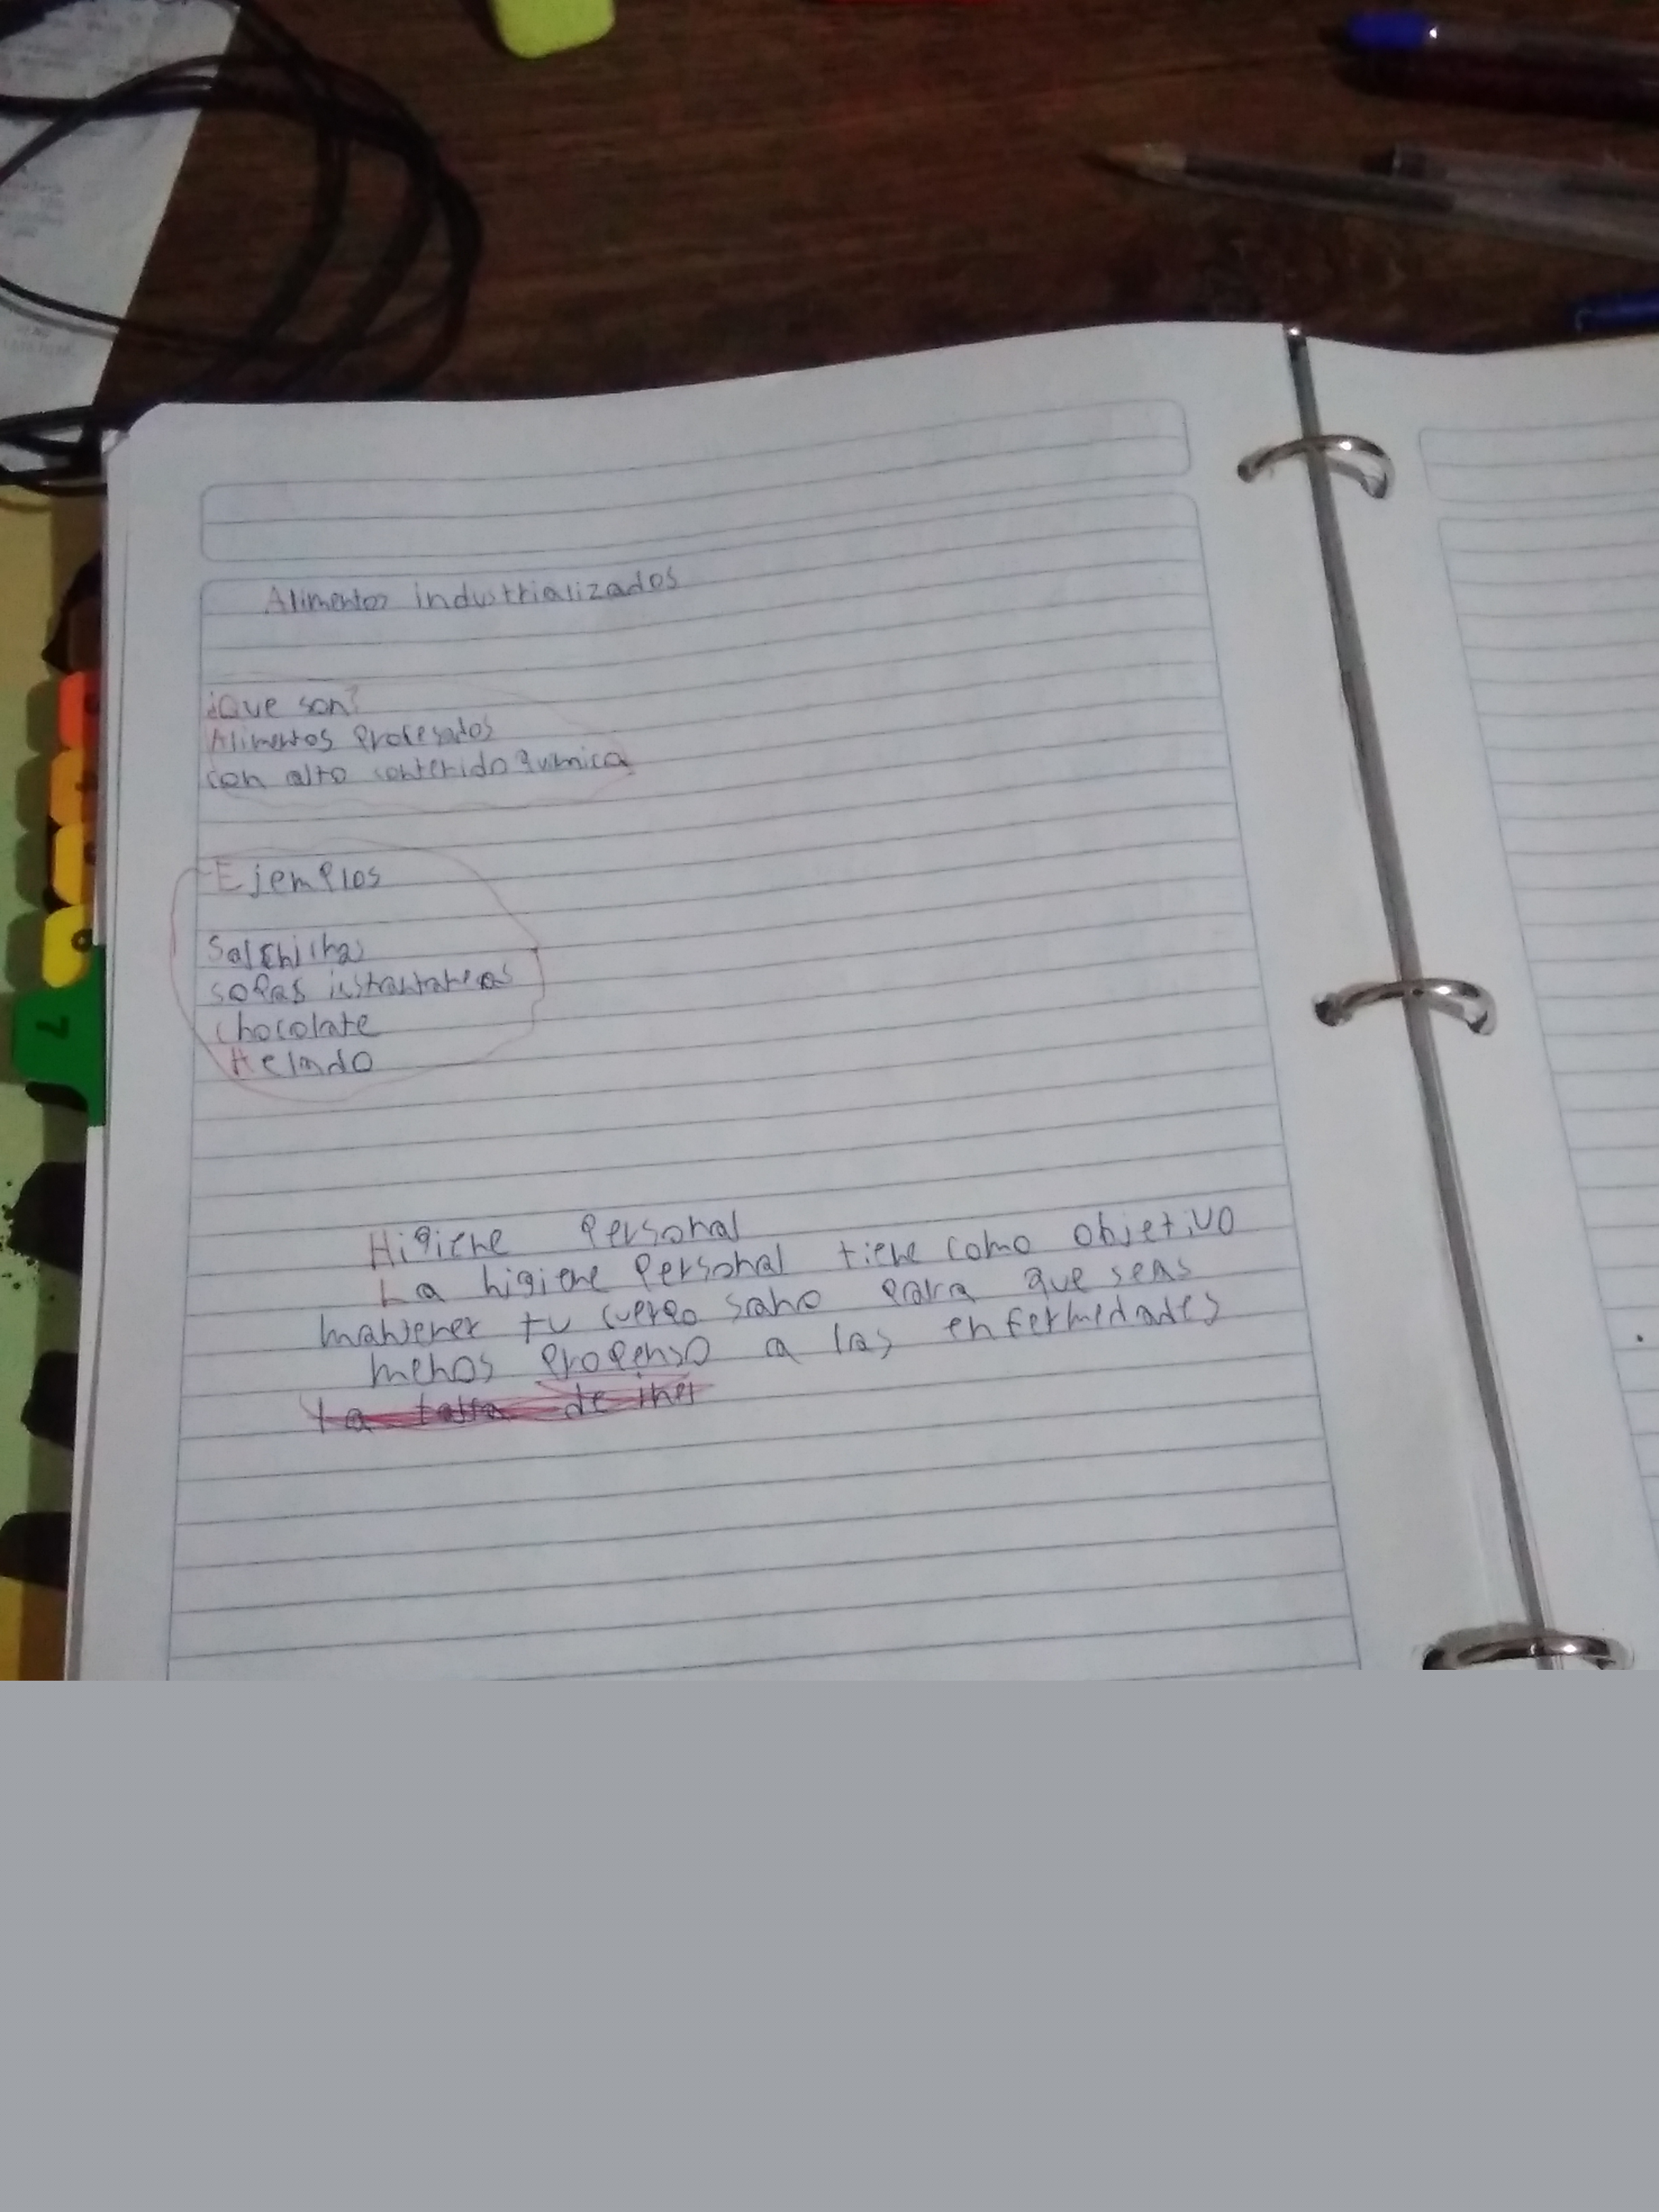 Alimentos industrializados
¿Que son?
Alimentos Procesados
con alto contenido quimica
Ejemplos
Salchicha
sopas istantaneas
chocolate
Helado
Higiene Personal
La higiene Personal tiene como objetivo
mantener tu cuerpo sano para que seas
menos propenso a las enfermedades
7